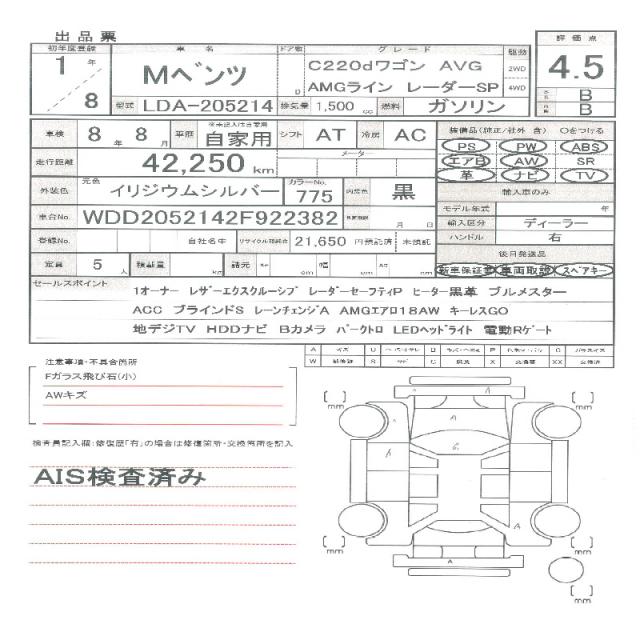 出品票
初年度登録 車名 ドア数 グレード 駆動 評価点
1年 8 Mベンツ D C220dワゴン AVG 2WD 4.5
AMGライン レーダーSP 4WD B
型式 LDA-205214 排気量 1,500 cc 燃料 ガソリン B
車検 8年 8月 車歴 自家用 シフト AT 冷房 AC 装備品(純正/社外 含) Oをつける
PS PW ABS
走行距離 42,250 km メーター エアB AW SR
革 ナビ TV
外装色 元色 イリジウムシルバー カラーNo. 775 内装色 黒 輸入車のみ
モデル年式 年
車台No. WDD2052142F922382 月 日 輸入区分 ディーラー
登録No. 自社名中 リサイクル預託金 21,650 円預託済 未預託 ハンドル 右
後日発送品
定員 5人 積載量 kg 諸元 cm 幅 cm cm 新車保証書 車両取説 スペアキー
セールスポイント
1オーナー レザーエクスクルーシブ レーダーセーフティP ヒーター黒革 ブルメスター
ACC ブラインドS レーンチェンジA AMGエアロ18AW キーレスGO
地デジTV HDDナビ Bカメラ パークトロ LEDヘッドライト 電動Rゲート
注意事項・不具合箇所
Fガラス飛び石(小)
AWキズ
検査員記入欄:修復歴「有」の場合は修復箇所・交換箇所を記入
AIS検査済み
A U B P C
W S C X XX
[ ] mm [ ] mm
A
A
G
A
[ ] mm [ ] mm
A
[ ] mm